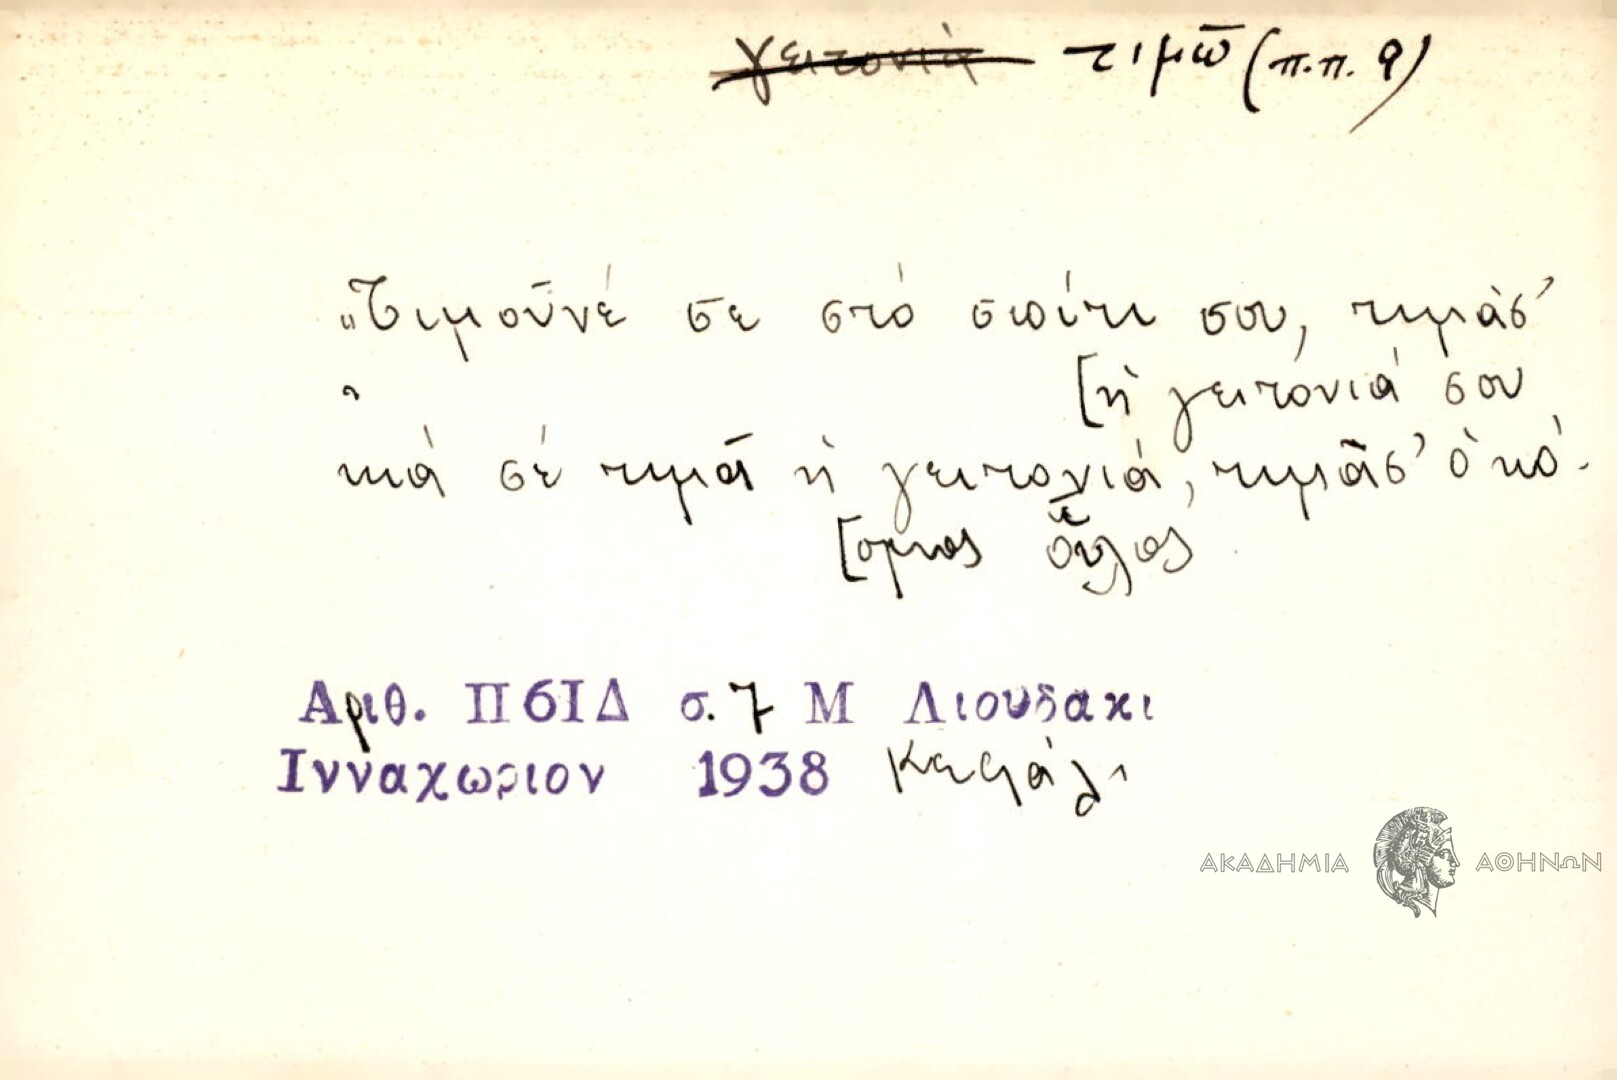 γειτονιὰ τιμῶ (π.π. 9)
„Τιμοῦνέ σε στὸ σπίτι σου, τιμᾶσ'
[ἡ γειτονιά σου
κιὰ σὲ τιμᾶ ἡ γειτονιά, τιμᾶσ' ὁ κό-
[σμος οὖλος
Αριθ. Π6ΙΔ σ. 7 Μ Λιουδακι
Ινναχωριον 1938 Κεφάλι
ΑΚΑΔΗΜΙΑ ΑΘΗΝΩΝ